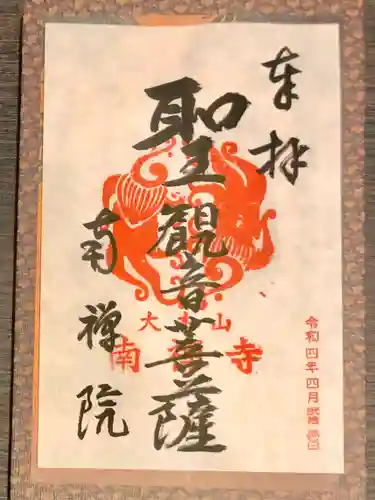 奉拝
聖観音菩薩
南禅院
大本山
南禅寺
令和四年四月